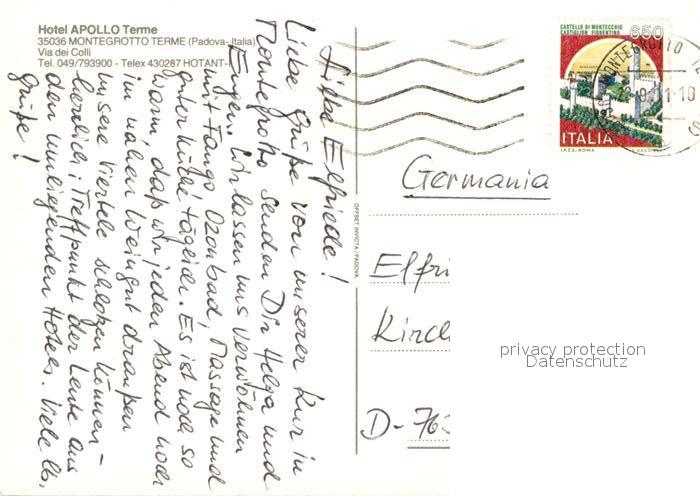 Hotel APOLLO Terme
35036 MONTEGROTTO TERME (Padova-Italia)
Via dei Colli
Tel. 049/793900 - Telex 430287 HOTANT-I
Liebe Elfriede!
Liebe Grüße von unserer Kur in
Montegrotto senden Dir Helga und
Eugen. Wir lassen uns verwöhnen
mit Fango, Ozonbad, Massage und
guter Küche täglich. Es ist noch so
warm, daß wir jeden Abend noch
im nahen Weingut draußen
unsere Viertele schlotzen können –
herrlich; Treffpunkt der Leute aus
den umliegenden Hotels. Viele lb.
Grüße!
OFFSET INVICTA / PADOVA
CASTELLO DI MONTECCHIO
CASTIGLION FIORENTINO
650
ITALIA
I.P.Z.S.-ROMA
MONTEGROTTO
Germania
Elfri
Kirch
D-763
privacy protection
Datenschutz